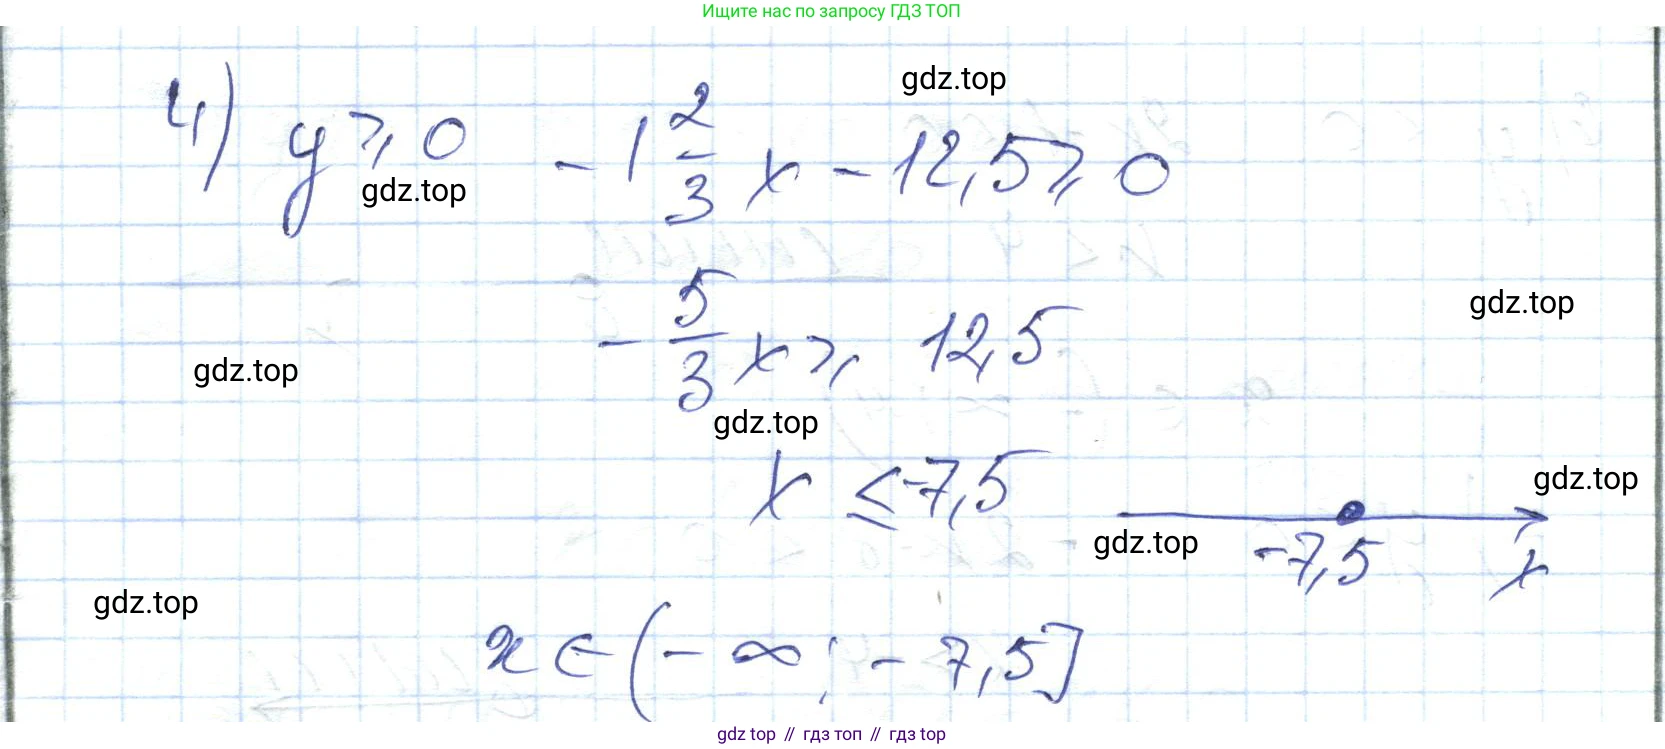 Ищите нас по запросу ГДЗ ТОП
gdz.top
4) y ⩾ 0 -1 2/3 x - 12,5 ⩾ 0
gdz.top
-5/3 x ⩾ 12,5
gdz.top
gdz.top
gdz.top
x ≤ -7,5
gdz.top
gdz.top
-7,5 x
gdz.top
x ∈ (-∞; -7,5]
gdz.top // гдз топ // гдз top